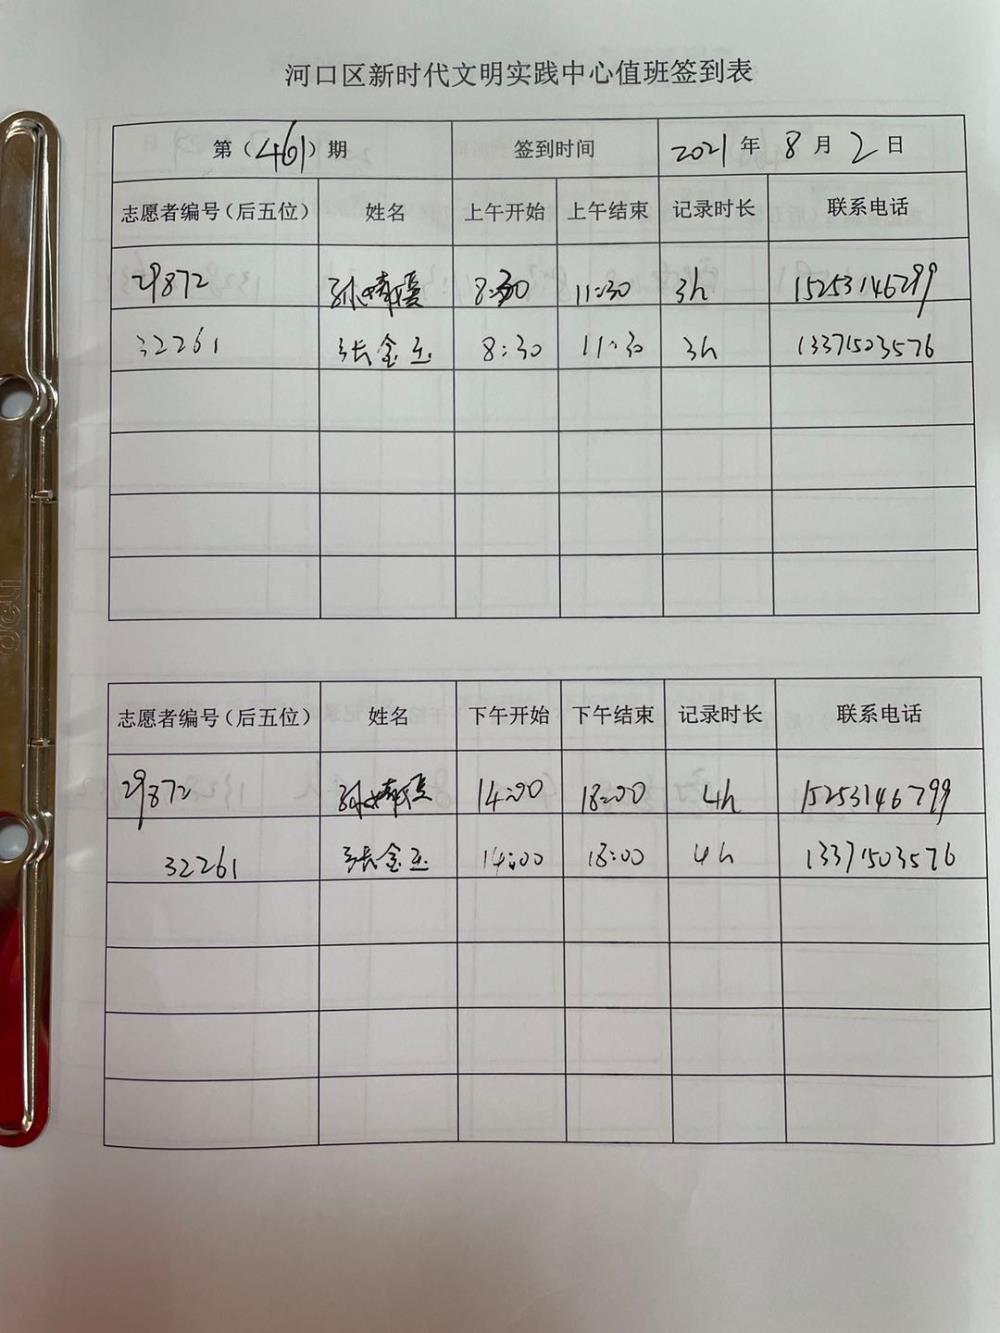 河口区新时代文明实践中心值班签到表
第（461）期 签到时间 2021年8月2日
志愿者编号（后五位） 姓名 上午开始 上午结束 记录时长 联系电话
29872 孙 8:30 11:30 3h 15253146799
32261 张金玉 8:30 11:30 3h 13371503576
志愿者编号（后五位） 姓名 下午开始 下午结束 记录时长 联系电话
29872 孙 14:00 18:00 4h 15253146799
32261 张金玉 14:00 18:00 4h 13371503576
deli